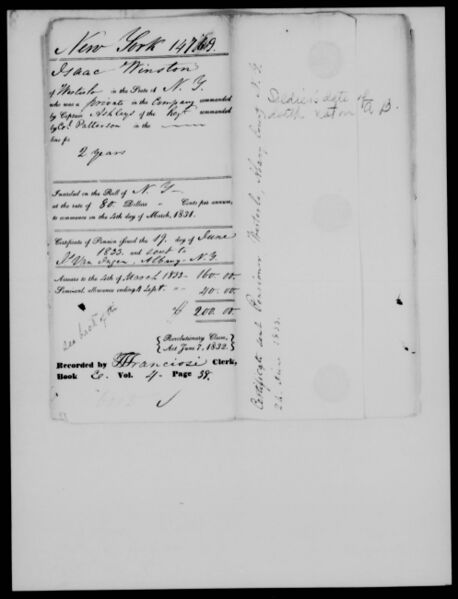 New York 14769.
Isaac Winston
of Westerlo in the State of N. Y.
who was a private in the Company commanded
by Captain Ashley of the Regt commanded
by Col. Patterson in the
line for
2 years
Inscribed on the Roll of N. Y.
at the rate of 80 Dollars " Cents per annum,
to commence on the 4th day of March, 1831.
Certificate of Pension issued the 19 day of June
1833 and sent to
Van Ingen, Albany N. Y.
Arrears to the 4th of March 1833 160.00
Semi-anl. allowance ending 4 Sept. " 40.00
200.00
see back of
{ Revolutionary Claim, }
{ Act June 7, 1832. }
Recorded by Clerk,
Book E. Vol. 4 Page 38.
Soldier's date of
death not on
Certificate sent Pensioner Westerlo, Albany County N. Y.
24 June 1833.